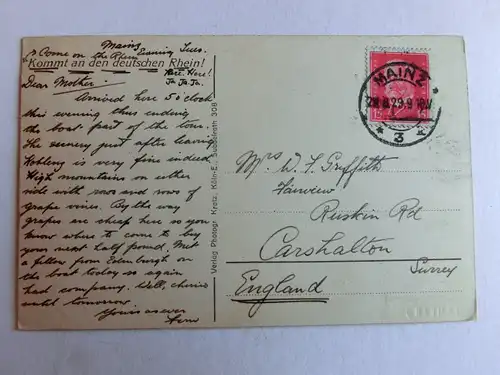 Mainz
Come on the Rhein Evening Tues.
Kommt an den deutschen Rhein!
Dear Mother,
Ja. Ja. Ja.
Arrived here 5 o'clock
this evening thus ending
the boat part of the tour.
The scenery just after leaving
Koblenz is very fine indeed
High mountains on either
side with rows and rows of
grape vines. By the way
grapes are cheap here so you
know where to come to buy
your next half pound. Met
a fellow from Edinburgh on
the boat today so again
had company. Well, cheerio
until tomorrow.
Yours as ever
Verlag Photogr. Kratz, Köln-E., Sülzgürtel 308
MAINZ
29.9
3
15
15
Mrs W. J. Griffith
Fairview
Ruskin Rd
Carshalton
Surrey
England